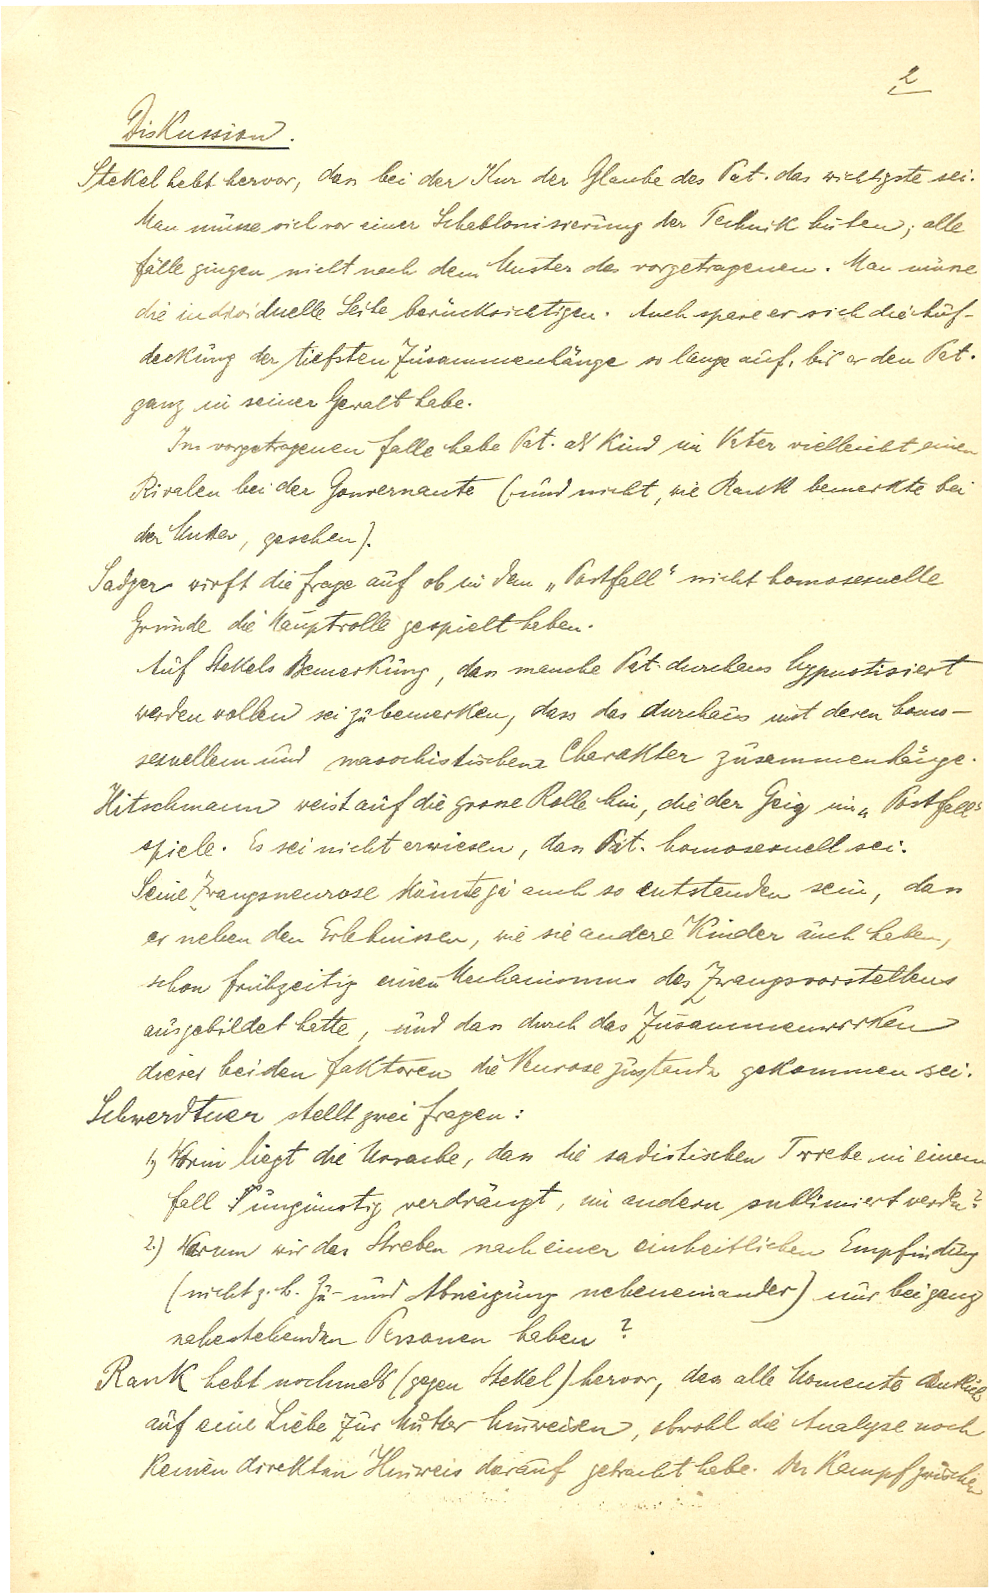 2
Diskussion.
Stekel hebt hervor, dass bei der Kur der Glaube des Pat. das wichtigste sei.
Man müsse sich vor einer Schablonisierung der Technik hüten; alle
Fälle gingen nicht nach dem Muster des vorgetragenen. Man müsse
die individuelle Seite berücksichtigen. Auch spare er sich die Auf-
deckung der tiefsten Zusammenhänge so lange auf, bis er den Pat.
ganz in seiner Gewalt habe.
Im vorgetragenen Falle habe Pat. als Kind im Vater vielleicht einen
Rivalen bei der Gouvernante (und nicht, wie Rank bemerkte bei
der Mutter, gesehen).
Sadger wirft die Frage auf ob in dem „Postfall" nicht homosexuelle
Gründe die Hauptrolle gespielt haben.
Auf Stekels Bemerkung, dass manche Pat. durchaus hypnotisiert
werden wollen sei zu bemerken, dass das durchaus mit deren homo-
sexuellem und masochistischem Charakter zusammenhänge.
Hitschmann weist auf die grosse Rolle hin, die der Geiz im „Postfall"
spiele. Es sei nicht erwiesen, dass Pat. homosexuell sei.
Seine Zwangsneurose könnte ja auch so entstanden sein, dass
er neben den Erlebnissen, wie sie andere Kinder auch haben,
schon frühzeitig einen Mechanismus des Zwangsvorstellens
ausgebildet hätte, und dass durch das Zusammenwirken
dieser beiden Faktoren die Neurose zustande gekommen sei.
Schwerdtner stellt zwei Fragen:
1.) Worin liegt die Ursache, dass die sadistischen Triebe in einem
Fall ungünstig verdrängt, im andern sublimiert werden?
2.) Warum wir das Streben nach einer einheitlichen Empfindung
(nicht z. b. Zu- und Abneigung nebeneinander) nur bei ganz
nahestehenden Personen haben?
Rank hebt nochmals (gegen Stekel) hervor, dass alle Momente
auf eine Liebe zur Mutter hinweisen, obwohl die Analyse noch
keinen direkten Hinweis darauf gebracht habe. Der Kampf zwischen